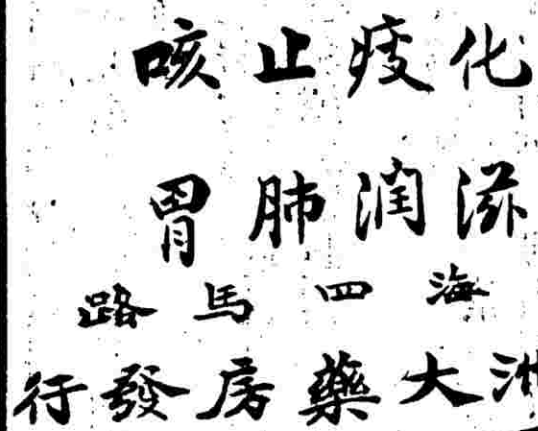 化痰止咳
滋潤肺胃
海四馬路
洲大藥房發行